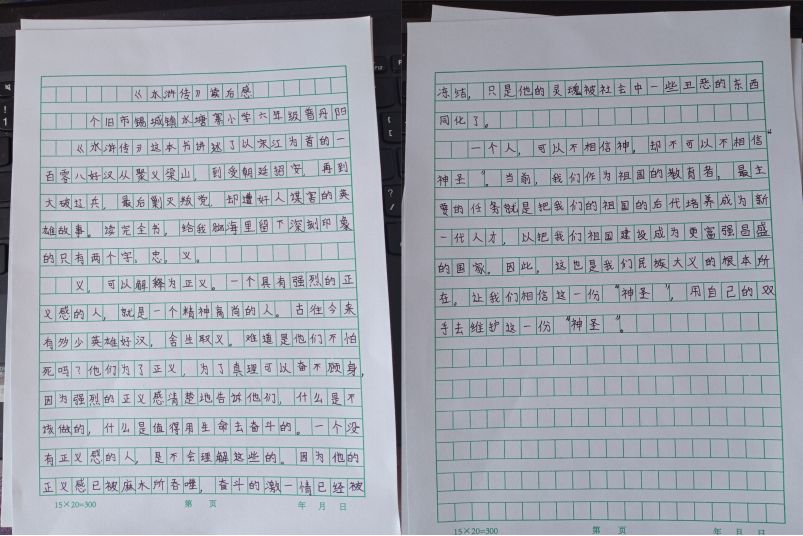 《水浒传》读后感
个旧市锡城镇水塘寨小学六年级普丹阳
《水浒传》这本书讲述了以宋江为首的一
百零八好汉从聚义梁山，到受朝廷招安，再到
大破辽兵，最后剿灭叛党，却遭奸人谋害的英
雄故事。读完全书，给我脑海里留下深刻印象
的只有两个字，忠，义。
义，可以解释为正义。一个具有强烈的正
义感的人，就是一个精神高尚的人。古往今来
有多少英雄好汉，舍生取义。难道是他们不怕
死吗？他们为了正义，为了真理可以奋不顾身，
因为强烈的正义感清楚地告诉他们，什么是不
该做的，什么是值得用生命去奋斗的。一个没
有正义感的人，是不会理解这些的。因为他的
正义感已被麻木所吞噬，奋斗的激一情已经被
15×20=300 第 页 年 月 日
冻结，只是他的灵魂被社去中一些丑恶的东西
同化了。
一个人，可以不相信神，却不可以不相信“
神圣”。当前，我们作为祖国的教育者，最主
要的任务就是把我们的祖国的后代培养成为新
一代人才，以把我们祖国建设成为更富强昌盛
的国家。因此，这也是我们民族大义的根本所
在。让我们相信这一份“神圣”，用自己的双
手去维护这一份“神圣”。
15×20=300 第 页 年 月 日